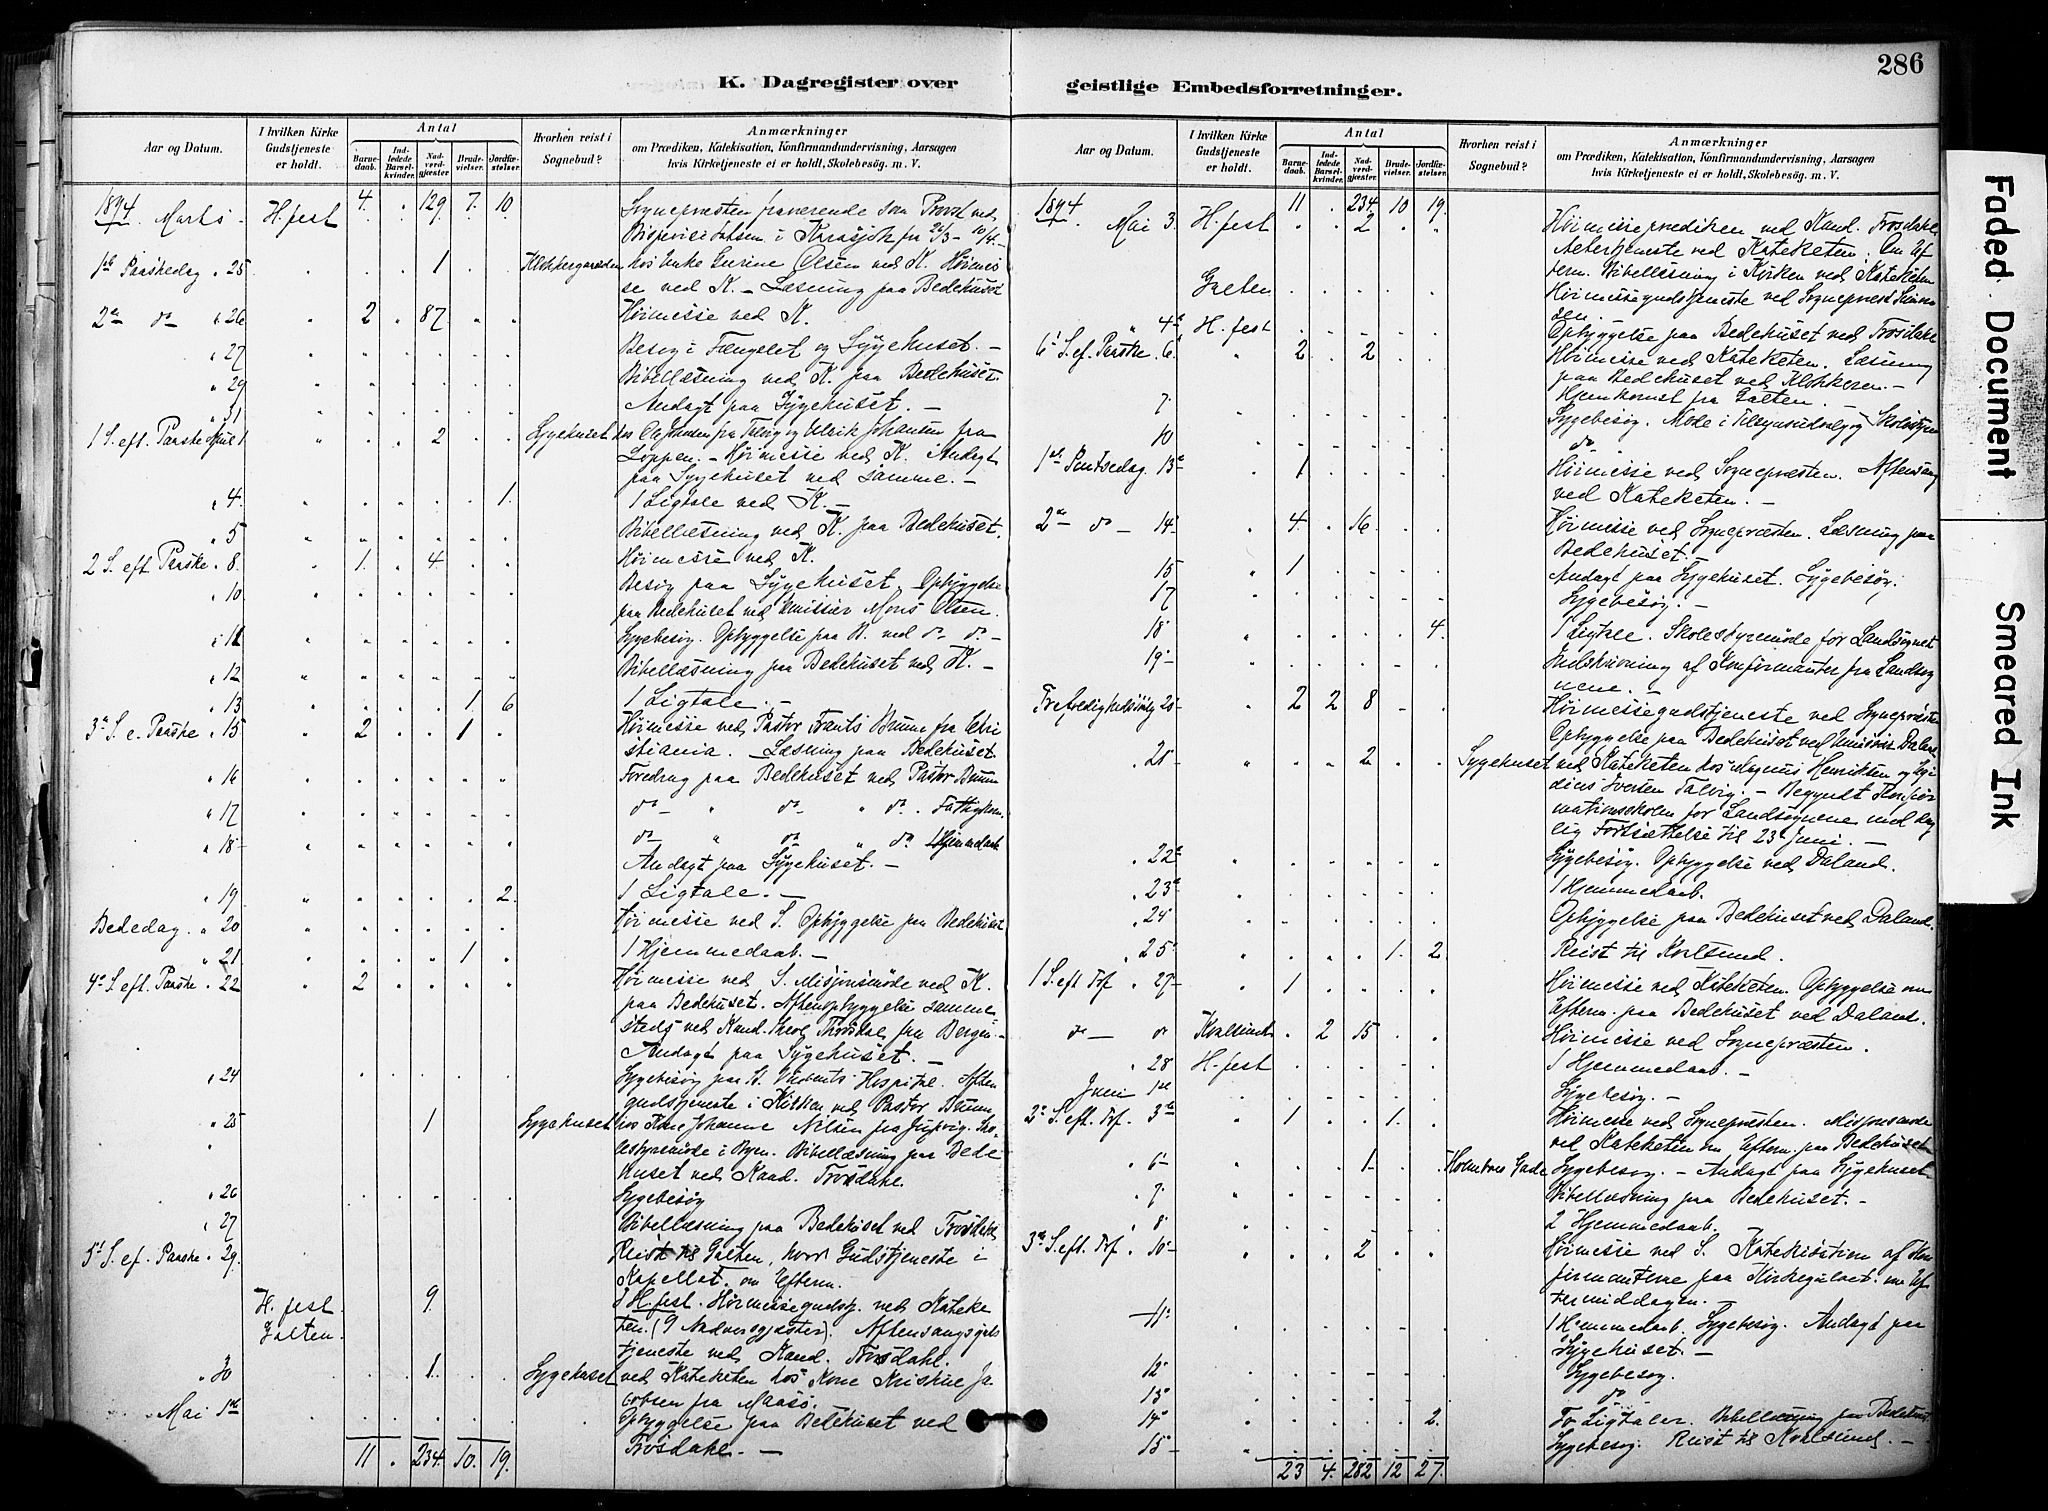 286
K. Dagregister over
geistlige Embedsforretninger.
Aar og Datum.
I hvilken Kirke Gudstjeneste er holdt.
Antal
Barnedaab.
Indledede Barselkvinder.
Nadverdgjæster.
Brudevielser.
Jordfæstelser.
Hvorhen reist i Sognebud?
Anmærkninger
om Prædiken, Katekisation, Konfirmandundervisning, Aarsagen
hvis Kirketjeneste ei er holdt, Skolebesøg. m. V.
1894. Marts. H.fest 4. " 129 7. 10. Sognepræsten fraværende som Provst ved
Bispevisitatsen i Karasjok fra 26/3 - 10/4.
1ste Paaskedag " 25 1 Klokkergaarden hos Enke Gurine Olsen ved K. Høimes
se ved K. - Læsning paa Bedehuset
2den do " 26 " 2 " 87 " " Høimesse ved K.
" 27 Besøg i Fængslet og Sygehuset. -
" 29 Bibellæsning ved K. paa Bedehuset.
" 31 Andagt paa Sygehuset. -
1 S. eft. Paaske April 1 " 2 Sygehuset hos Ole Johnsen fra Talvig og Ulrik Johansen fra
Loppen. - Høimesse ved K. Andagt
paa Sygehuset ved samme. -
" 4. 1. 1 Ligtale ved K. -
" 5 Bibellæsning ved K. paa Bedehuset.
2 S. eft. Paaske " 8. " 1. " 4 Høimesse ved K.
" 10 Besøg paa Sygehuset. Opbyggelse
paa Bedehuset ved Emissær Mons Olsen.
" 11 Sygebesøg. Opbyggelse paa B. ved do do. -
" 12 Bibellæsning paa Bedehuset ved K. -
" 13 1 6 1 Ligtale. -
3die S. e. Paaske " 15 " 2 1 Høimesse ved Pastor Frants Bruun fra Chri
stiania. - Læsning paa Bedehuset.
" 16 Foredrag paa Bedehuset ved Pastor Bruun
" 17 do - " do - " do. Fattigkom.
" 18 do - " do " do 1 Hjemmedaab
Andagt paa Sygehuset. -
" 19 2. 1 Ligtale. -
Bededag. " 20 Høimesse ved S. Opbyggelse paa Bedehuset
" 21. 1 1 Hjemmedaab. -
4de S. eft. Paaske " 22 " 2 Høimesse ved S. Misjonsmøde ved K.
paa Bedehuset. Aftenopbyggelse samme
steds ved Kand. theol. Trosdahl fra Bergen. -
Andagt paa Sygehuset. -
" 24 Sygebesøg paa St. Vincents Hospital. Aften
gudstjeneste i Kirken ved Pastor Bruun
" 25 1 Sygehuset hos Kone Johanne Nilsen fra Jupvig. Sko
lestyremøde i Byen. Bibellæsning paa Bede
huset ved Kand. Trosdahl.
" 26 Sygebesøg
" 27 Bibellæsning paa Bedehuset ved Trosdahl
5te S. ef. Paaske " 29. Reist til Galten, hvor Gudstjeneste i
Kapellet. om Efterm.
H.fest. 9. I H.fest. Høimessegudstj. ved Kateke
Galten. ten. (9 Nadverdgjæster). Aftensangsguds
tjeneste ved Kand. Trosdahl.
" 30 1. Sygehuset ved Kateketen hos Kone Kristine Ja
cobsen fra Maasø.
Mai 1ste Opbyggelse paa Bedehuset ved
Trosdahl. -
11 " 234. 10. 19.
Aar og Datum.
I hvilken Kirke Gudstjeneste er holdt.
Antal
Barnedaab.
Indledede Barselkvinder.
Nadverdgjæster.
Brudevielser.
Jordfæstelser.
Hvorhen reist i Sognebud?
Anmærkninger
om Prædiken, Katekisation, Konfirmandundervisning, Aarsagen
hvis Kirketjeneste ei er holdt, Skolebesøg. m. V.
1894 11 . 234. 10 19.
Mai 3. H.fest " " 2 Høimesseprædiken ved Kand. Trosdahl.
Altertjeneste ved Kateketen. Om Ef
term. Bibellæsning i Kirken ved Kateketen
Galten Høimessegudstjeneste ved Sognepræst Simon
sen.
" 4de H.fest Opbyggelse paa Bedehuset ved Trosdahl
6te S. ef. Paaske. 6te " 2 2 Høimesse ved Kateketen. Læsning
paa Bedehuset ved Klokkeren. -
7. Hjemkomst fra Galten. -
10 Sygebesøg. Møde i Tilsynsudvalg og Skolestyre
do.
1ste Pintsedag. 13de " 1 Høimesse ved Sognepræsten. Aftensang
ved Kateketen. -
2den do - 14 " 4. " 16 Høimesse ved Sognepræsten. Læsning paa
Bedehuset. -
15 " 1 Andagt paa Sygehuset. Sygebesøg.
17 Sygebesøg. -
18 4. 1 Ligtale. Skolestyremøde for Landsognet
19 Indskrivning af Konfirmanter fra Landsog
nene. -
Trefoldighedssøndg 20 " 2 2 8 Høimessegudstjeneste ved Sognepræsten
Opbyggelse paa Bedehuset ved Emissær Daland
21 2 Sygehuset ved Kateketen hos Magnus Henriksen og Egi
dius Iversen Talvig. - Begyndt Konfir
mationsskolen for Landsognene med dag
lig Fortsættelse til 23de Juni. -
" 22de Sygebesøg. Opbyggelse ved Daland.
" 23de 1 Hjemmedaab.
" 24 Opbyggelse paa Bedehuset ved Daland.
" 25 1. 2. Reist til Kvalsund.
1 S. eft Tref " 27 " 1 Høimesse ved Kateketen. Opbyggelse om
Efterm. paa Bedehuset ved Daland.
do - do Kvalsund . 2 15 Høimesse ved Sognepræsten.
" 28 H.fest 1 Hjemmedaab. -
Juni 1ste Sygebesøg. -
2den S. eft. Tref. 3die " 1 1. Høimesse ved Sognepræsten. Misjonsmøde
ved Kateketen om Efterm. paa Bedehuset
" 6 1 Gade Sygebesøg. - Andagt paa Sygehuset
" 7. Bibellæsning paa Bedehuset. -
" 8 2 Hjemmedaab.
3die S. eft. Tref. " 10 " 2 Høimesse ved S. Katekisation af Kon
firmanterne paa Kirkegulvet om Ef
termiddagen. -
11 1 Hjemmedaab. Sygebesøg. Andagt paa
Sygehuset. -
12 Sygebesøg.
13 do
14 2. To Ligtaler. Bibellæsning paa Bedehus.
15 Sygebesøg. Reist til Kvalsund. -
23 4. 282 12 27.
Faded Document
Smeared Ink